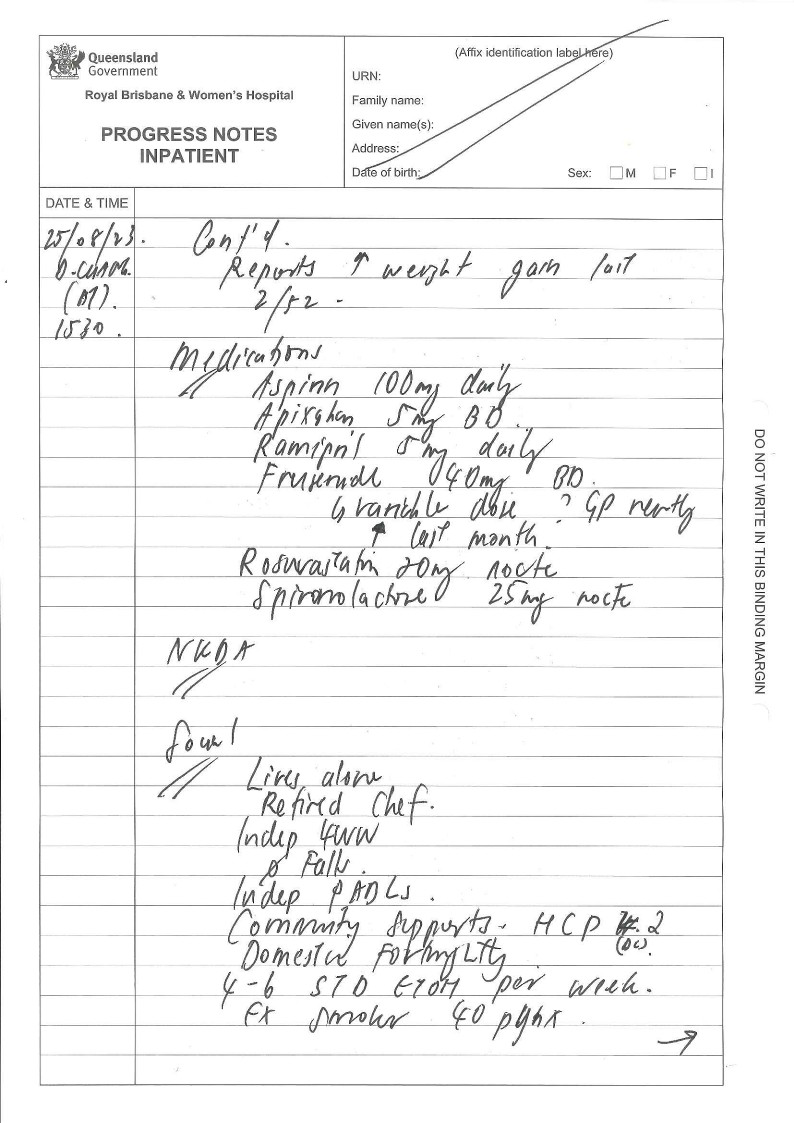 Queensland
Government
Royal Brisbane & Women's Hospital
PROGRESS NOTES
INPATIENT
(Affix identification label here)
URN:
Family name:
Given name(s):
Address:
Date of birth:
Sex: M F I
DATE & TIME
25/08/23.
1530.
Cont'd.
Reports ↑ weight gain last
2/52 -
Medications
Aspirin 100mg daily
Apixaban 5mg BD.
Ramipril 5mg daily
Frusemide 40mg BD.
↳ variable dose ? GP recently
↑ last month.
Rosuvastatin 20mg nocte
Spironolactone 25mg nocte
NKDA
Social
Lives alone
Retired Chef.
Indep 4WW
ø Falls.
Indep PADLs.
Community supports - HCP 2
Domestic
4-6 STD ETOH per week.
Ex smoker 40 pyhx.
→
DO NOT WRITE IN THIS BINDING MARGIN